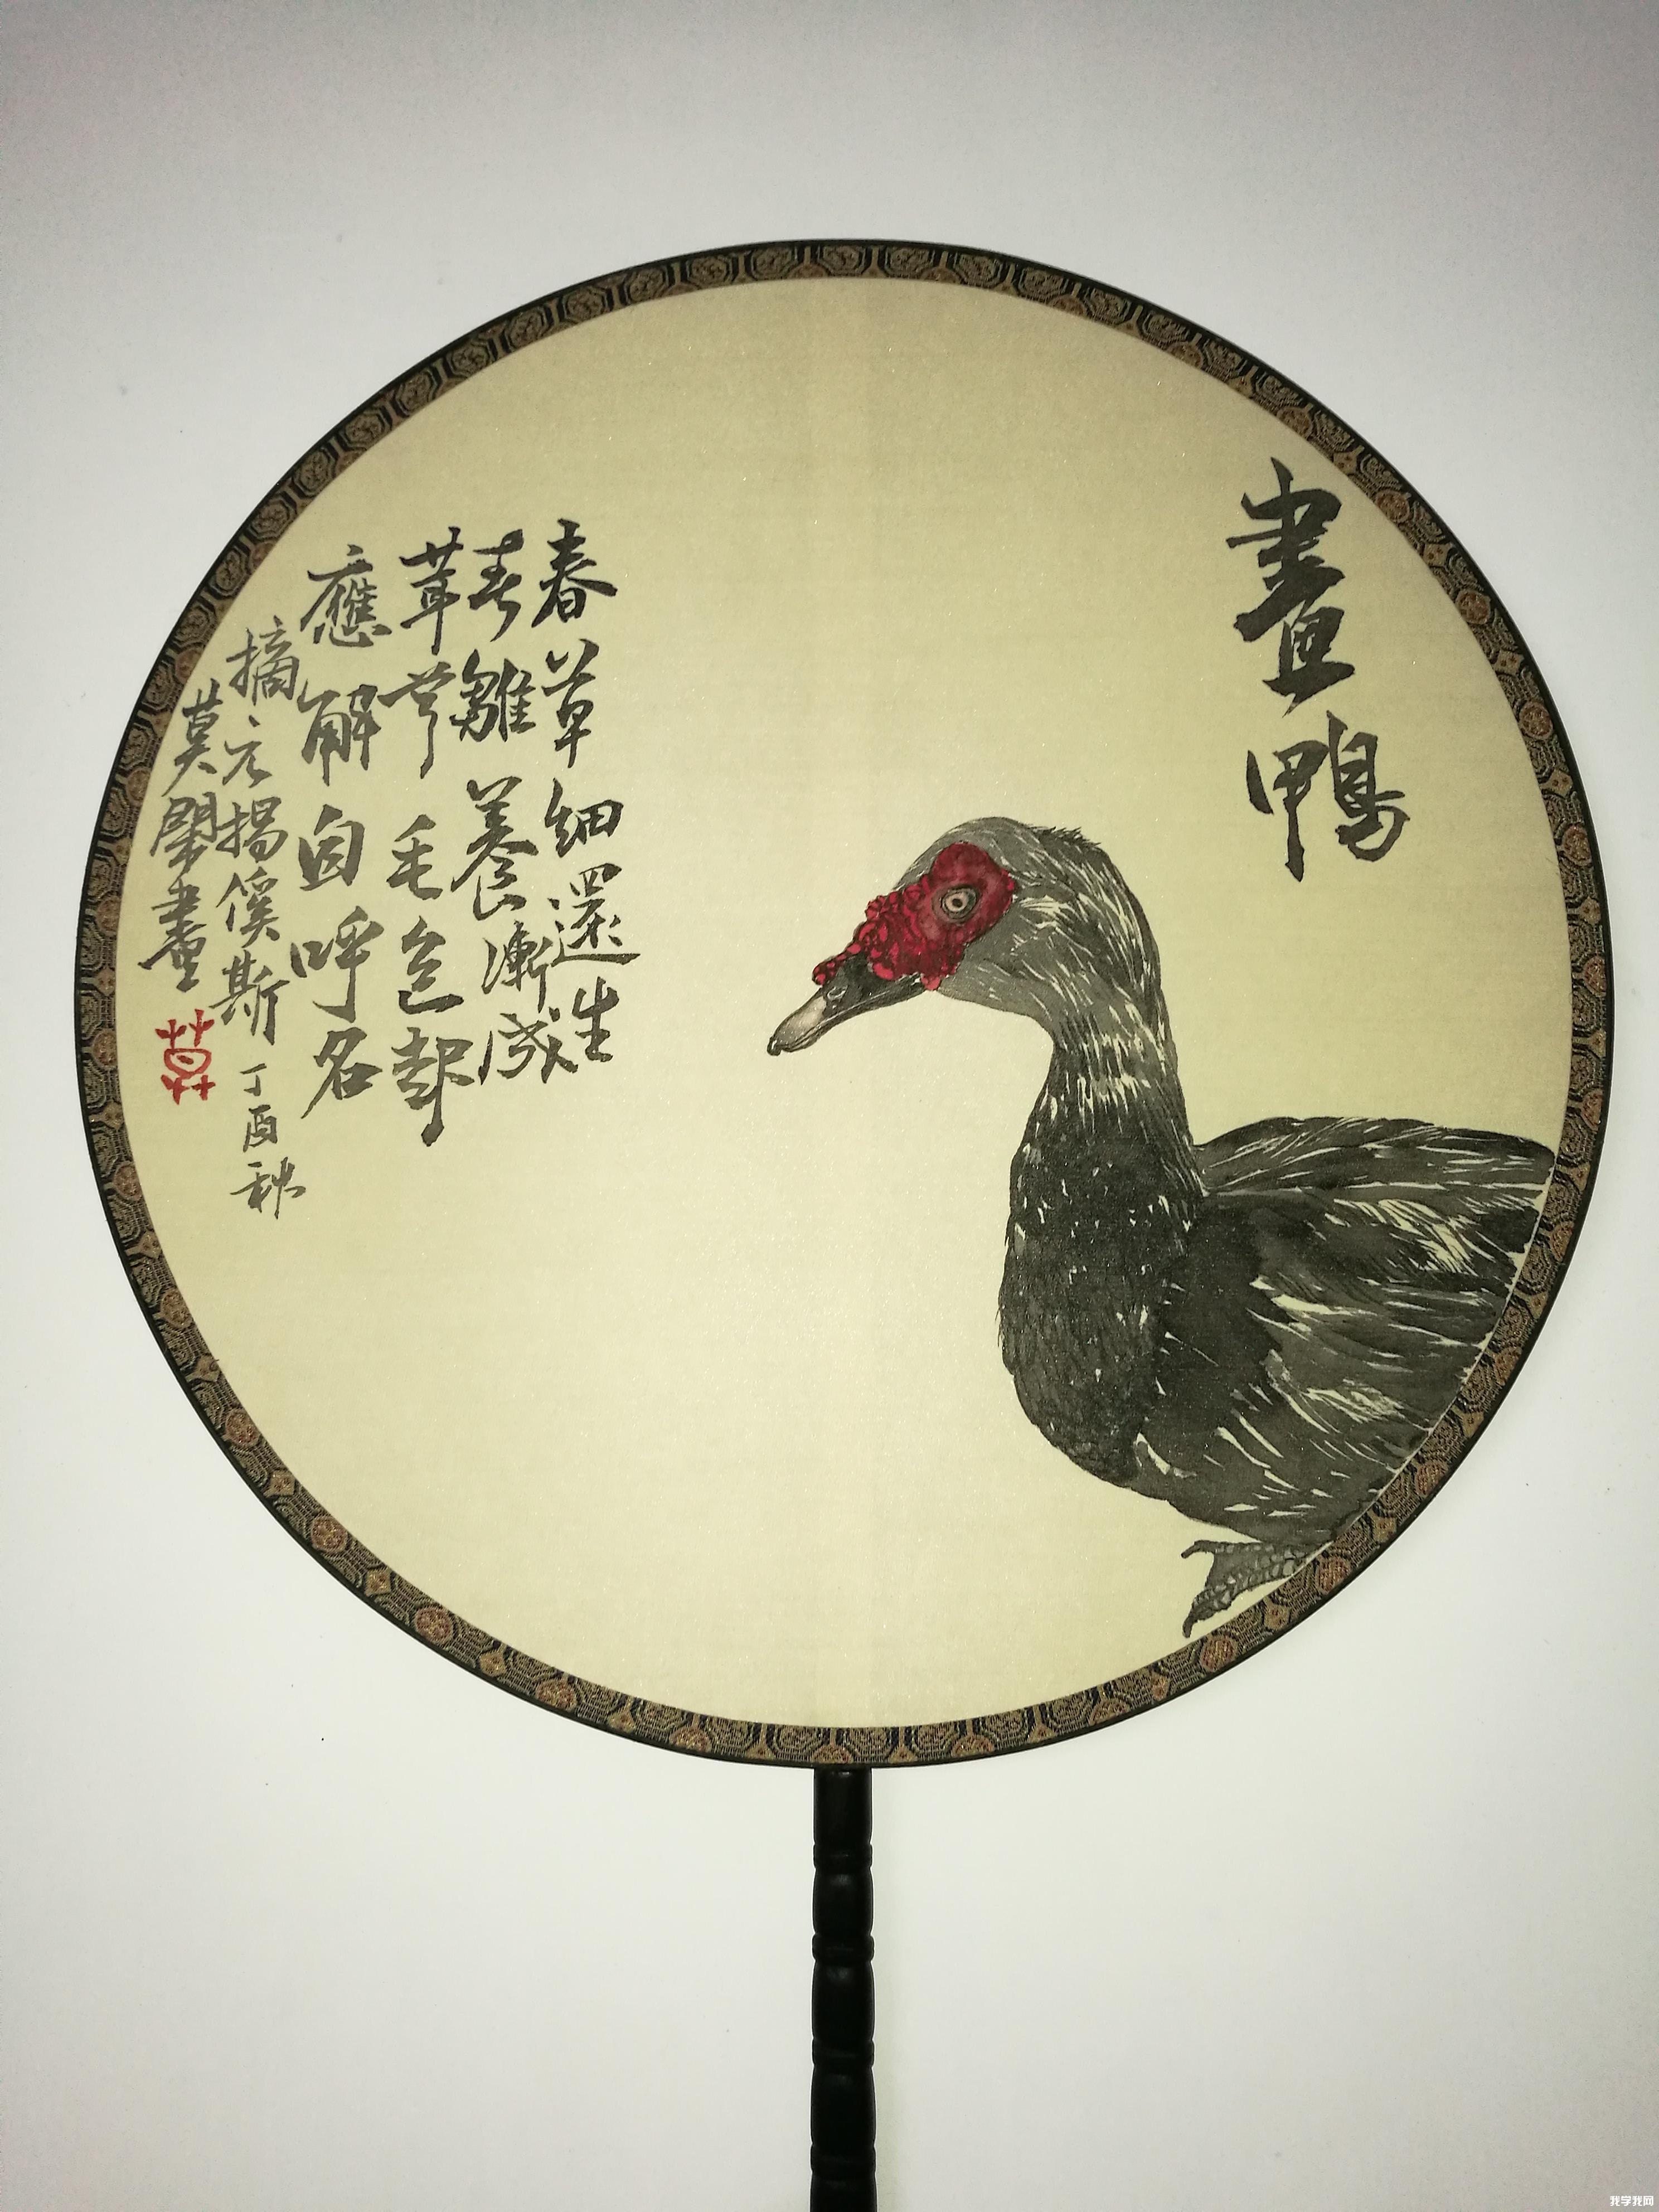 畫鴨
春草細還生
春雛養漸成
茸茸毛色起
應解自呼名
摘元揭傒斯 丁酉秋
莫 畫
莫
我学我网